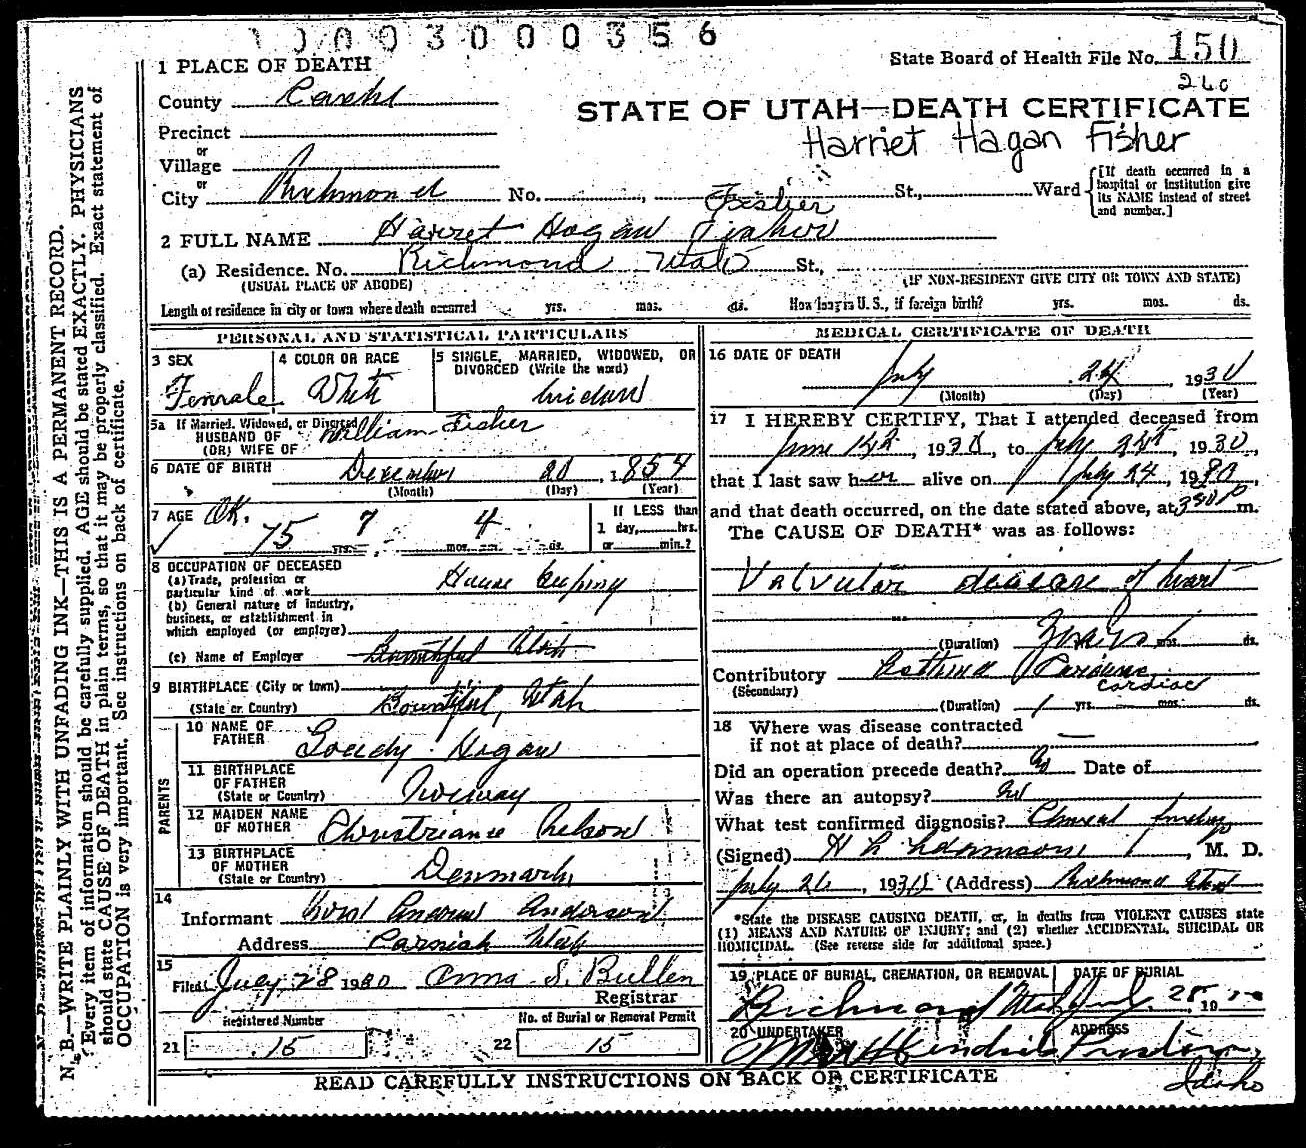 1 0 0 0 3 0 0 0 0 3 5 6
State Board of Health File No. 150
260
1 PLACE OF DEATH
County Cache
STATE OF UTAH—DEATH CERTIFICATE
Harriet Hagan Fisher
Precinct
or
Village
or
City Richmond No. , St., Ward
[If death occurred in a hospital or institution give its NAME instead of street and number.]
Fisher
2 FULL NAME Harret Hogan Fisher
(a) Residence. No. Richmond Utah St.,
(USUAL PLACE OF ABODE) (IF NON-RESIDENT GIVE CITY OR TOWN AND STATE)
Length of residence in city or town where death occurred yrs. mos. ds. How long in U. S., if foreign birth? yrs. mos. ds.
PERSONAL AND STATISTICAL PARTICULARS
3 SEX 4 COLOR OR RACE 5 SINGLE, MARRIED, WIDOWED, OR
DIVORCED (Write the word)
Female White widow
5a If Married, Widowed, or Divorced
HUSBAND OF
(OR) WIFE OF William Fisher
6 DATE OF BIRTH December 20, 1854
(Month) (Day) (Year)
7 AGE OK. 75 yrs. 7 mos. 4 ds.
If LESS than
1 day, hrs.
or min.?
8 OCCUPATION OF DECEASED
(a) Trade, profession or
particular kind of work House keeping
(b) General nature of industry,
business, or establishment in
which employed (or employer)
(c) Name of Employer Bountiful Utah
9 BIRTHPLACE (City or town)
(State or Country) Bountiful, Utah
PARENTS
10 NAME OF
FATHER Goudy Hogan
11 BIRTHPLACE
OF FATHER
(State or Country) Norway
12 MAIDEN NAME
OF MOTHER Christiane Nelson
13 BIRTHPLACE
OF MOTHER
(State or Country) Denmark
14
Informant Andrew Anderson
Address Cornish Utah
15
Filed July 28 1930 Anna S. Bullen
Registrar
Registered Number No. of Burial or Removal Permit
21 15 22 15
MEDICAL CERTIFICATE OF DEATH
16 DATE OF DEATH
July 24, 1930
(Month) (Day) (Year)
17 I HEREBY CERTIFY, That I attended deceased from
June , 1930, to July 24th, 1930,
that I last saw her alive on July 24, 1930,
and that death occurred, on the date stated above, at m.
The CAUSE OF DEATH* was as follows:
Valvular disease of heart
(Duration) mos. ds.
Contributory Asthma
cardiac
(Secondary)
(Duration) 1 yrs. mos. ds.
18 Where was disease contracted
if not at place of death? —
Did an operation precede death? No Date of
Was there an autopsy? no
What test confirmed diagnosis? Clinical findings
(Signed) , M. D.
July 26, 1930 (Address) Richmond Utah
*State the DISEASE CAUSING DEATH, or, in deaths from VIOLENT CAUSES state
(1) MEANS AND NATURE OF INJURY; and (2) whether ACCIDENTAL, SUICIDAL OR
HOMICIDAL. (See reverse side for additional space.)
19 PLACE OF BURIAL, CREMATION, OR REMOVAL DATE OF BURIAL
Richmond Utah July 28, 19
20 UNDERTAKER ADDRESS
Hendricks Preston,
Idaho
READ CAREFULLY INSTRUCTIONS ON BACK OF CERTIFICATE
N. B.—WRITE PLAINLY WITH UNFADING INK—THIS IS A PERMANENT RECORD.
Every item of information should be carefully supplied. AGE should be stated EXACTLY. PHYSICIANS
should state CAUSE OF DEATH in plain terms, so that it may be properly classified. Exact statement of
OCCUPATION is very important. See instructions on back of certificate.